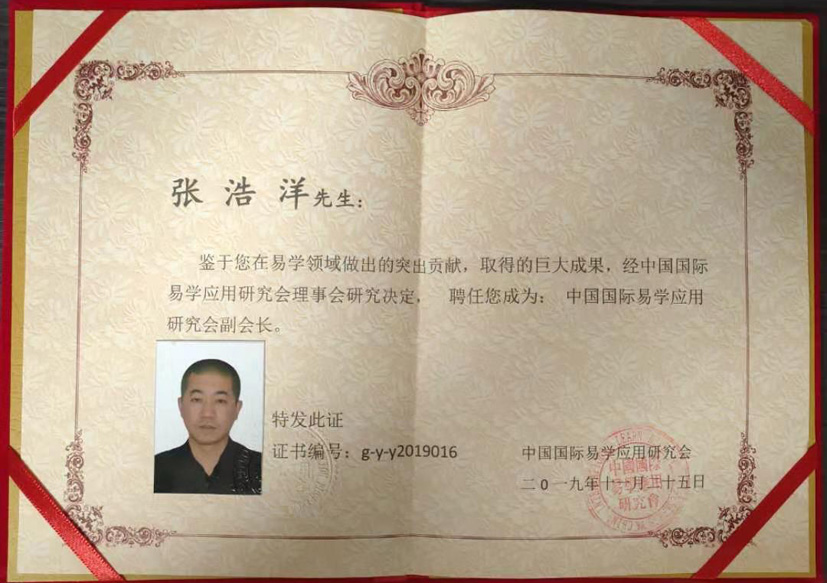 张浩洋先生：
鉴于您在易学领域做出的突出贡献，取得的巨大成果，经中国国际
易学应用研究会理事会研究决定， 聘任您成为： 中国国际易学应用
研究会副会长。
特发此证
证书编号：g-y-y2019016
中国国际易学应用研究会
二0一九年十一月二十五日
中國國際
研究會